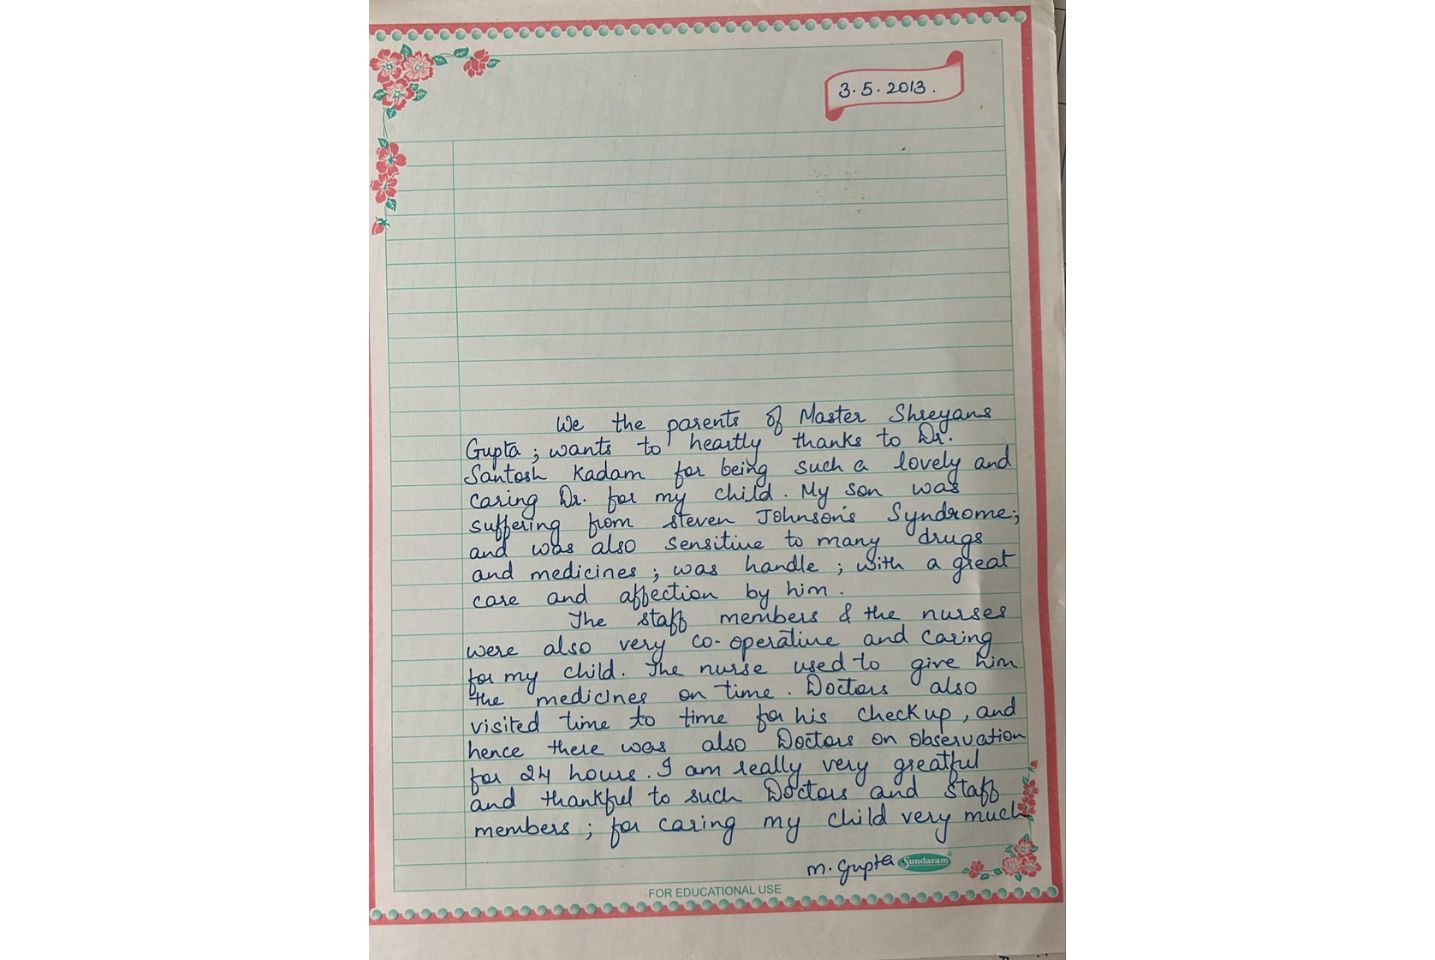 3.5.2013.
We the parents of Master Shreyans
Gupta ; wants to heartly thanks to Dr.
Santosh Kadam for being such a lovely and
caring Dr. for my child. My son was
suffering from steven Johnson's Syndrome;
and was also sensitive to many drugs
and medicines ; was handle ; with a great
care and affection by him.
The staff members & the nurses
were also very co-operative and caring
for my child. The nurse used to give him
the medicines on time. Doctors also
visited time to time for his checkup, and
hence there was also Doctors on observation
for 24 hours. I am really very greatful
and thankful to such Doctors and staff
members ; for caring my child very much
M. Gupta
Sundaram
FOR EDUCATIONAL USE